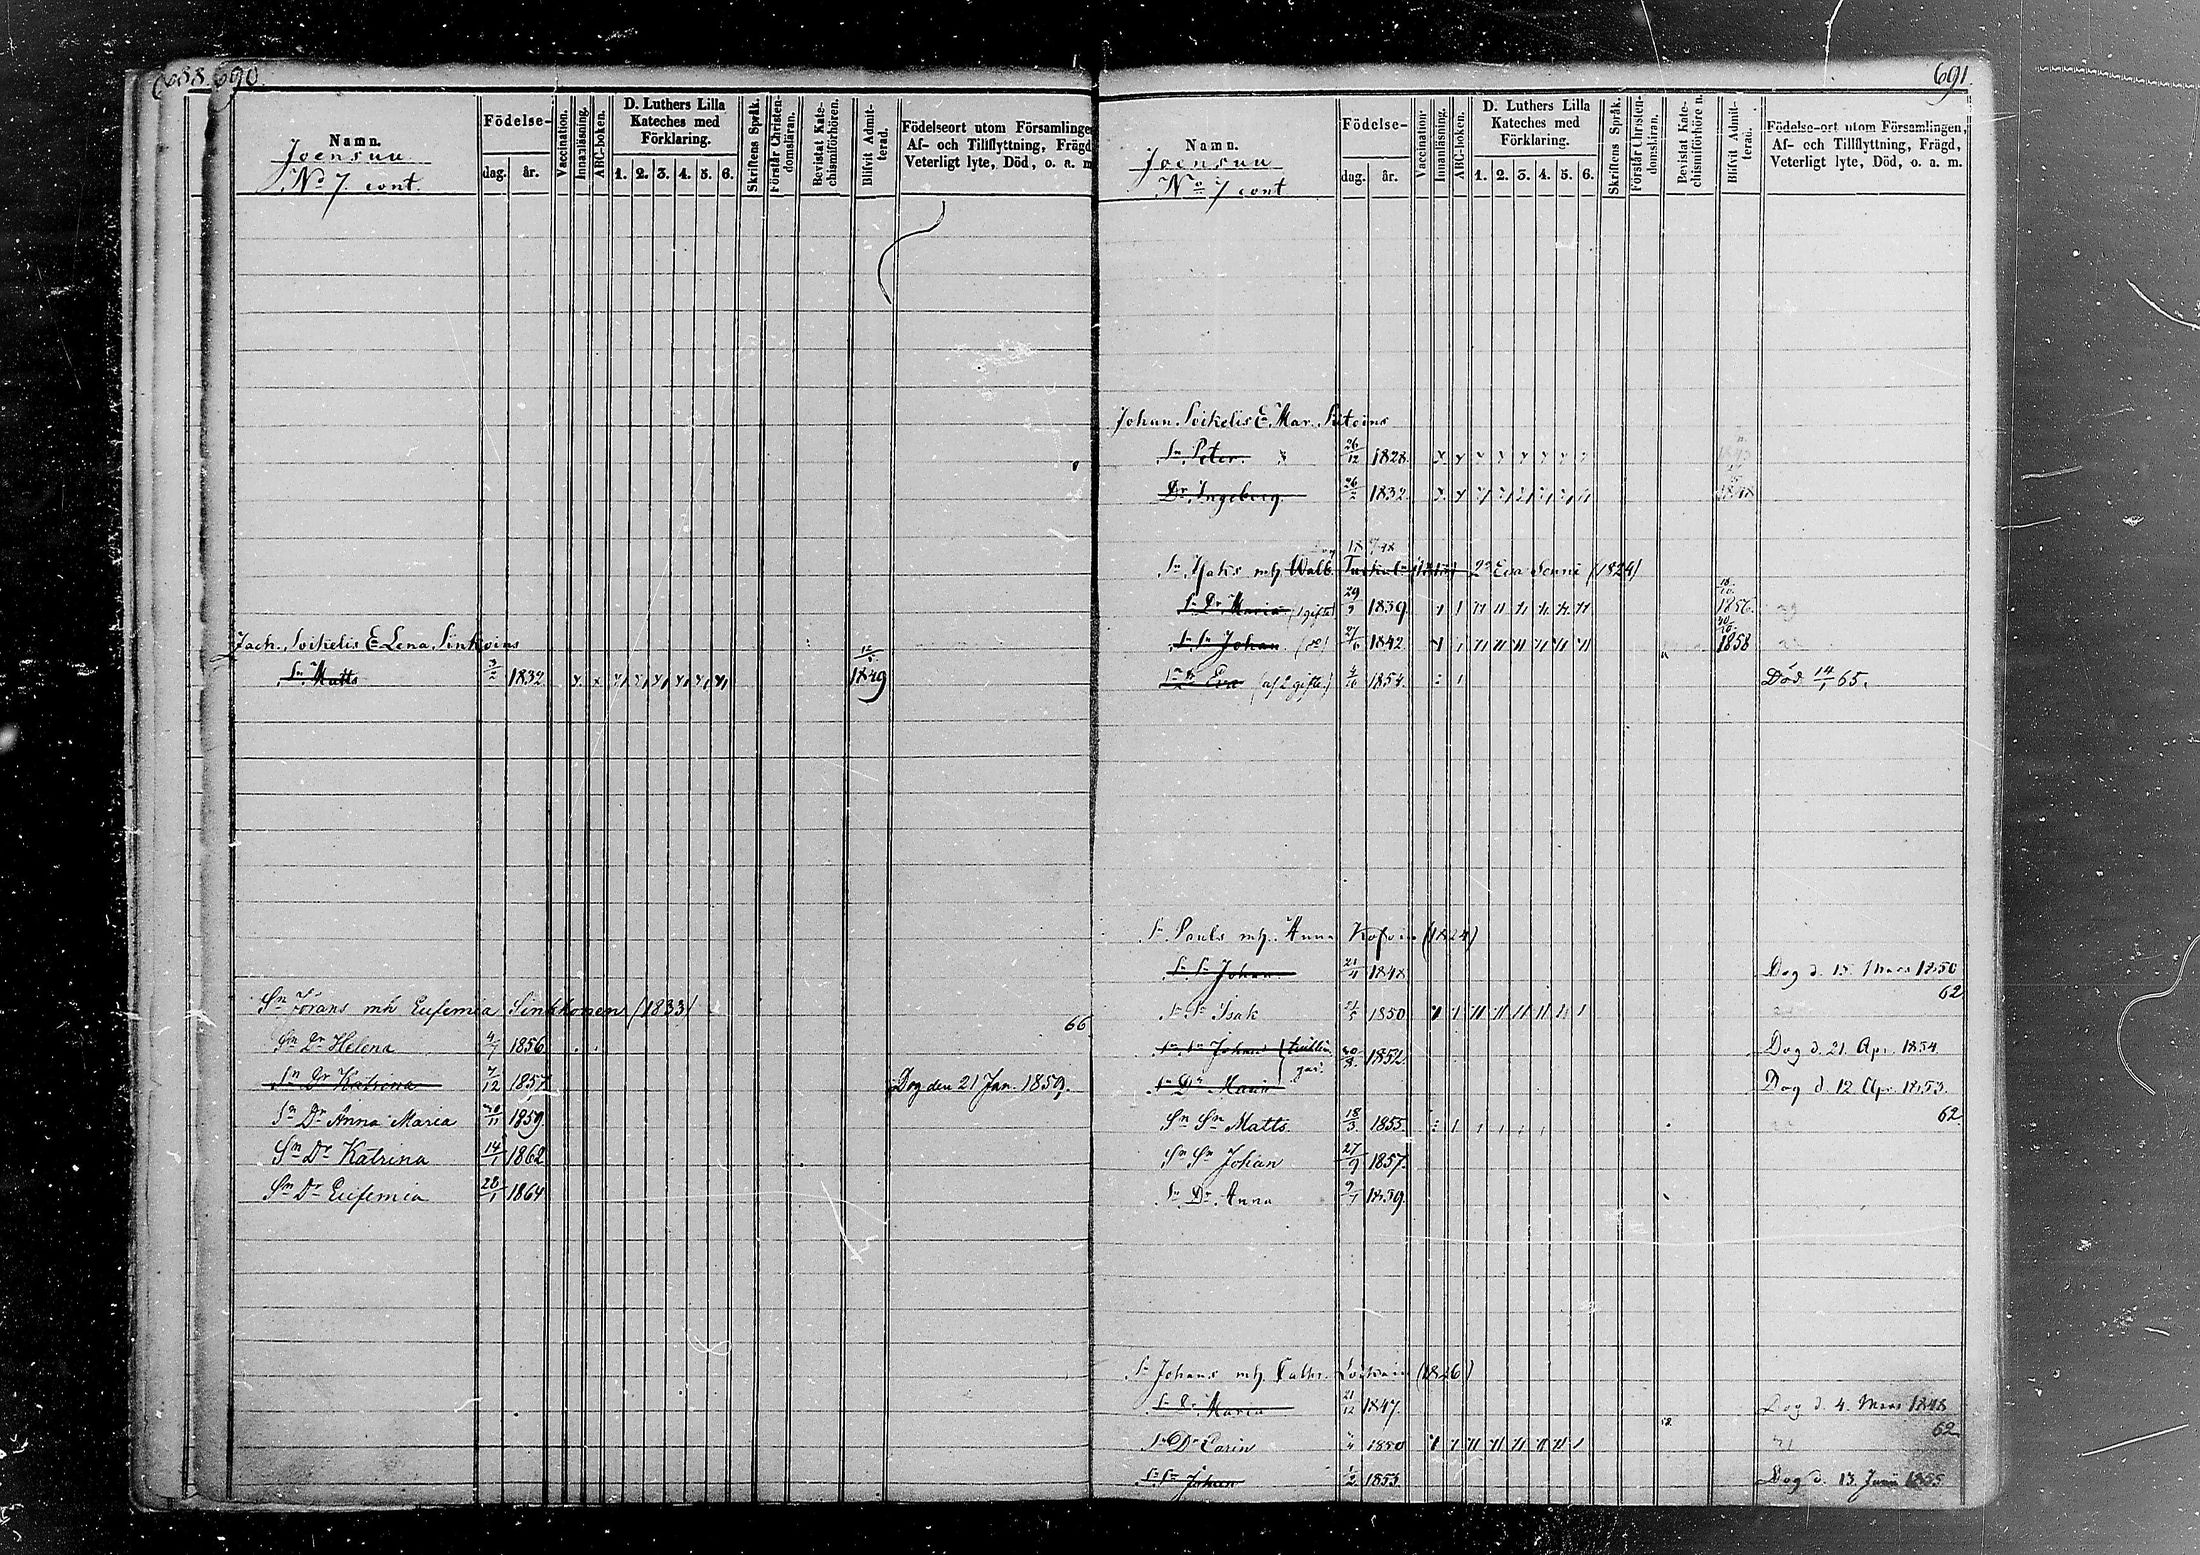 688. 690.
Namn.
Joensuu
No 7 cont.
Födelse-
dag. år.
Vaccination.
Innanläsning.
ABC-boken.
D. Luthers Lilla
Kateches med
Förklaring.
1. 2. 3. 4. 5. 6.
Skriftens Språk.
Förstår Christen-
domsläran.
Bevistat Kate-
chismiförhören.
Blifvit Admit-
terad.
Födelseort utom Församlingen
Af- och Tillflyttning, Frägd,
Veterligt lyte, Död, o. a. m.
Zach. Soikelis E. Lena Sinkoins
Sn Matts 3/2 1832 1849
Sn Jörans mh Eufemia Sinkkonen (1833)
66
Sn Dr Helena 4/7 1856
Sn Dr Katrina 7/12 1857 Dog den 21 Jan. 1859.
Sn Dr Anna Maria 30/11 1859
Sn Dr Katrina 14/1 1862
Sn Dr Eufemia 28/1 1864
691.
Namn.
Joensuu
No 7 cont
Födelse-
dag. år.
Vaccination
Innanläsning.
ABC-boken.
D. Luthers Lilla
Kateches med
Förklaring.
1. 2. 3. 4. 5. 6.
Skriftens Språk.
Förstår Christen-
domsläran.
Bevistat Kate-
chismiförhören.
Blifvit Admit-
terad.
Födelse-ort utom Församlingen,
Af- och Tillflyttning, Frägd,
Veterligt lyte, Död, o. a. m.
Johan Soikelis E. Mar.
Sn Peter. 26/12 1828
Dr Ingeborg 26/2 1832 1848
Sn Isaks mh Walb. 2o Eva Sonni (1824)
Sn Dr Maria (1 gifte) 29/9 1839 18/10 1856
Sn Sn Johan 27/6 1842 1858
Sn Dr Eva (af 2 gifte) 4/10 1854 Död 14/1 65.
Sn Pauls mh. Anna (1824)
Sn Sn Johan 21/4 1848 Dog d. 15 Mars 1850
62
Sn Sn Isak 1850
Sn Sn Johan 1852 Dog d. 21. Apr. 1854
Sn Dr Maria Dog d. 12 Apr. 1853.
62
Sn Sn Matts 18/3 1855
Sn Sn Johan 27/9 1857
Sn Dr Anna 9/7 1859
Sn Johans mh. Cathr. (1826)
Sn Dr Maria 21/12 1847. Dog d. 4. Mars 1848
62
Sn Dr Carin 1850
Sn Sn Johan 1/2 1853 Dog d. 13 Juni 1855